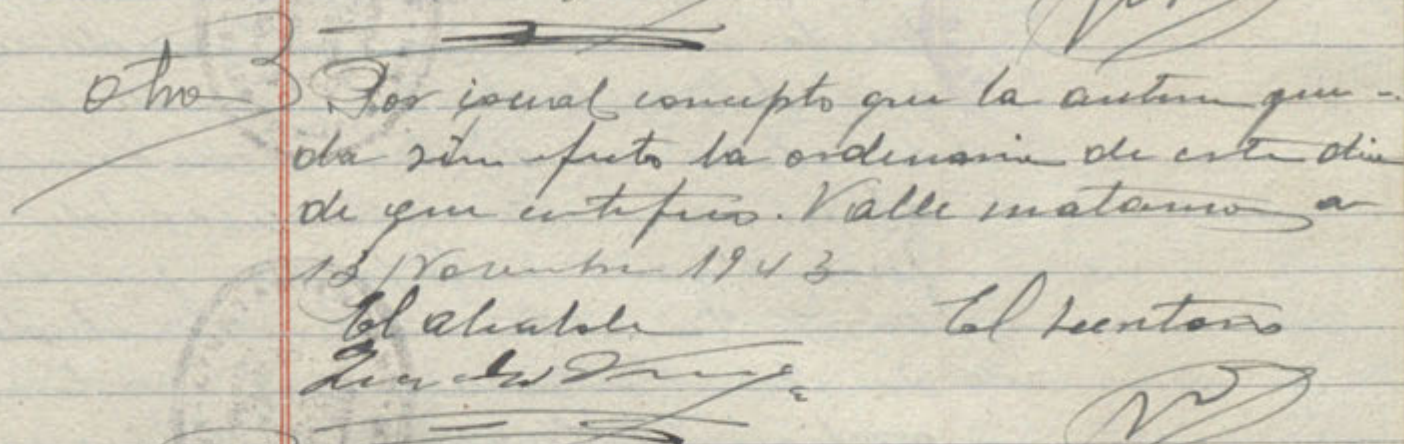 Otro } Por igual concepto que la anterior que-
da sin efecto la ordinaria de este dia
de que certifico. Vallematamoros a
13 Noviembre 1943
El alcalde El Secretario